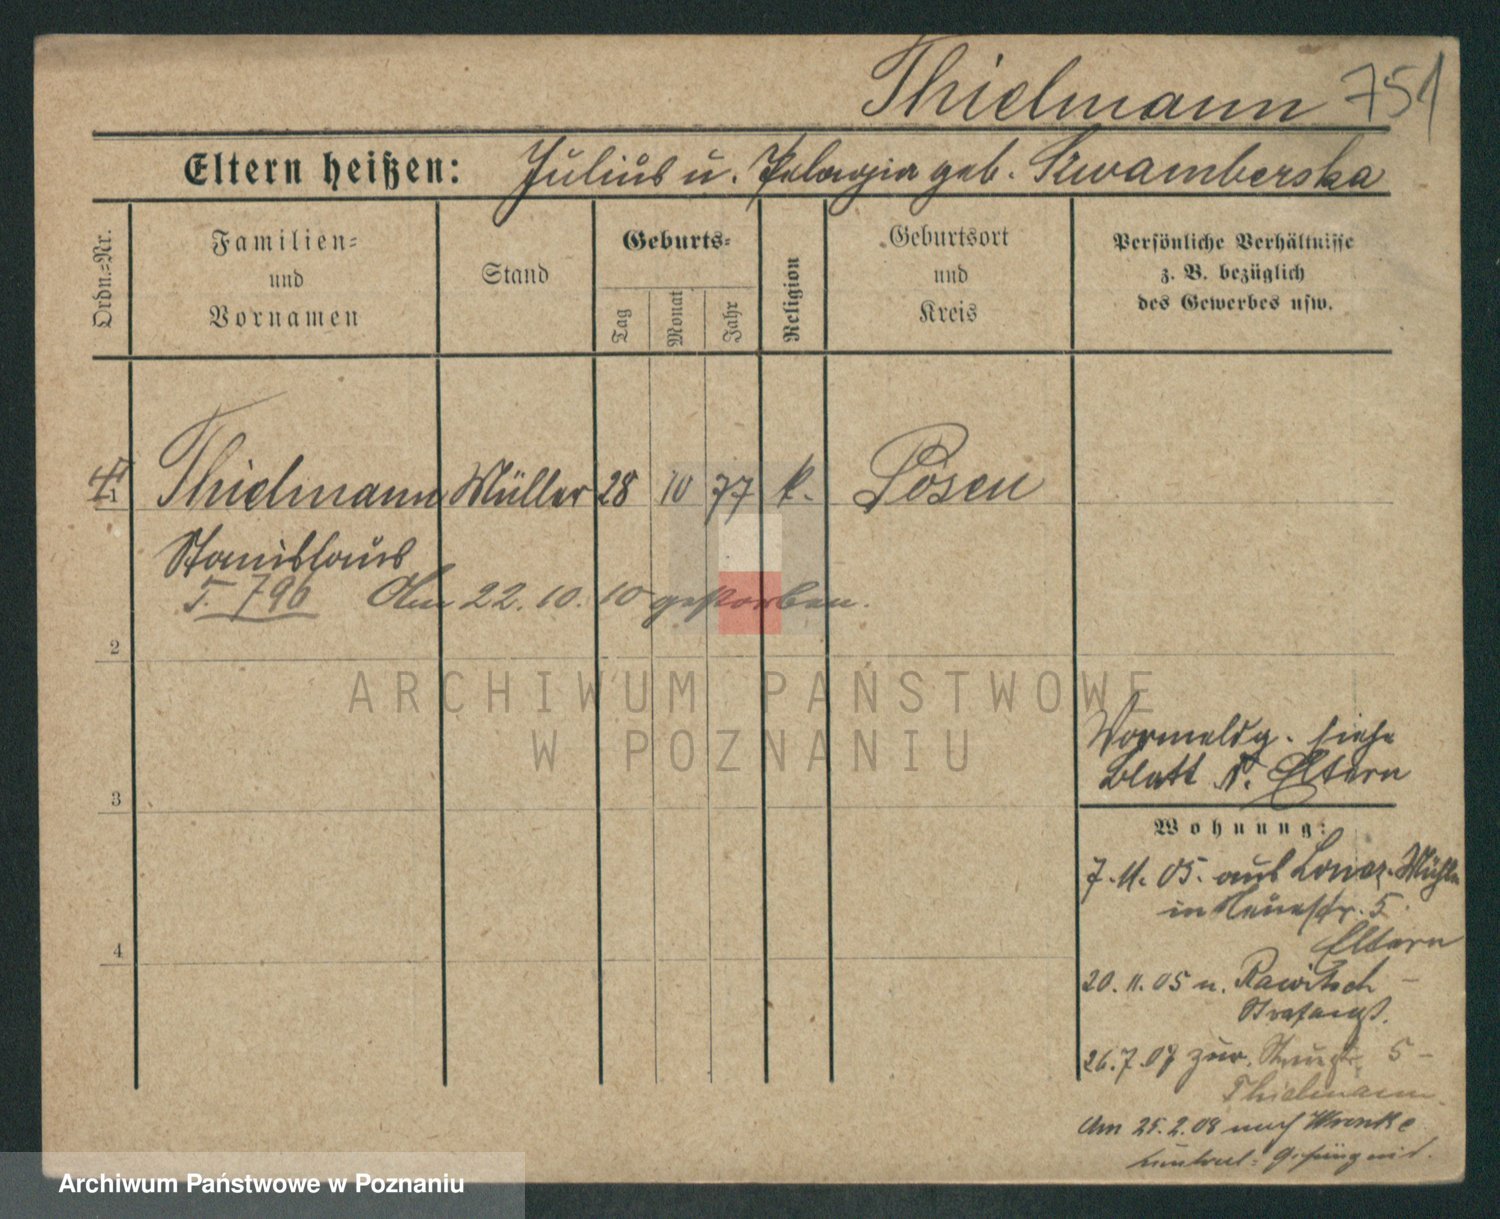 Thielmann 751
Eltern heißen: Julius u. Pelagia geb. Szwamberska
Ordn.-Nr.
Familien- und Vornamen
Stand
Geburts-
Tag
Monat
Jahr
Religion
Geburtsort und Kreis
Persönliche Verhältnisse
z. B. bezüglich
des Gewerbes usw.
1 Thielmann Müller 28 10 77 k. Posen
Stanislaus
T. 796 Am 22. 10. 10 gestorben.
2
ARCHIWUM PAŃSTWOWE
W POZNANIU
Vormeldg. siehe
Blatt d. Eltern
3
Wohnung:
7. 11. 05. aus Mühle
in Neuestr. 5.
Eltern
4
20. 11. 05 n. Rawitsch –
Strafanst.
26. 7. 07 zur. 5 –
Thielmann.
Am 25. 2. 08 nach Wronke
Central-Gefängnis.
Archiwum Państwowe w Poznaniu